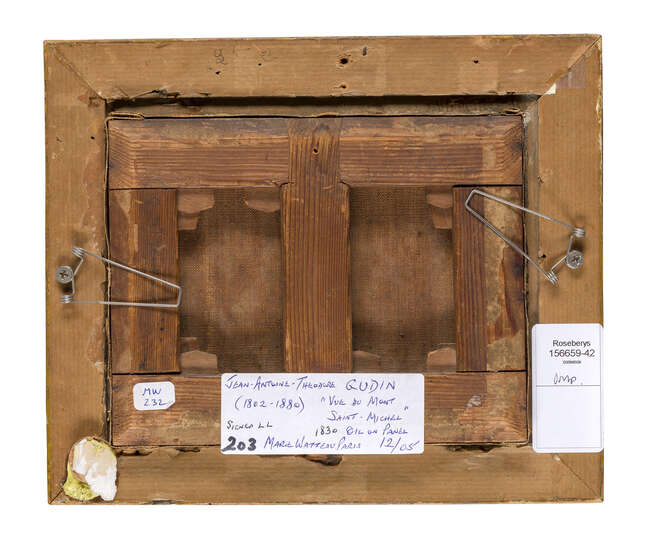 Roseberys
156659-42
MW
232
JEAN-ANTOINE-THEODORE GUDIN
(1802-1880) "VUE DU MONT
SAINT-MICHEL"
SIGNED LL 1830 OIL ON PANEL
203 MARC WATTEAU PARIS 12/05